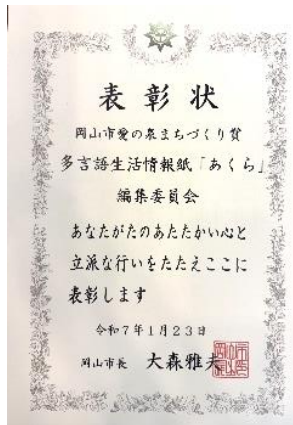 表彰状
岡山市愛の泉まちづくり賞
多言語生活情報紙「あくら」
編集委員会
あなたがたのあたたかい心と
立派な行いをたたえここに
表彰します
令和7年1月23日
岡山市長 大森雅夫